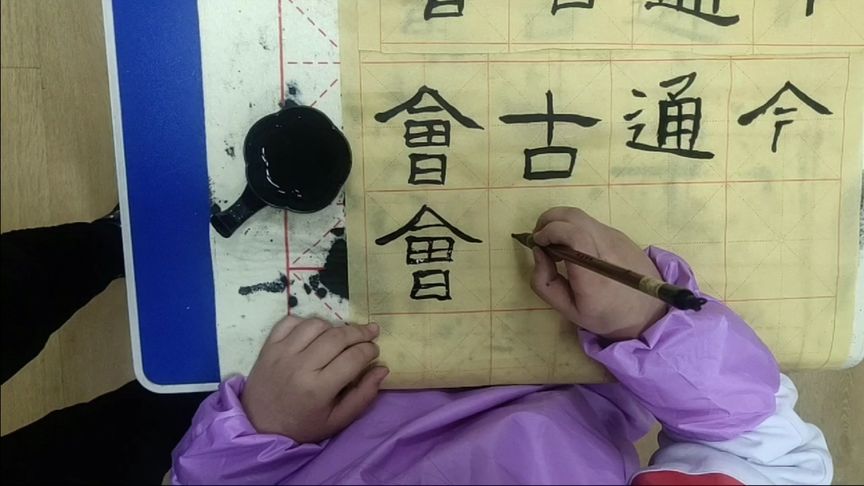 會古通今
會